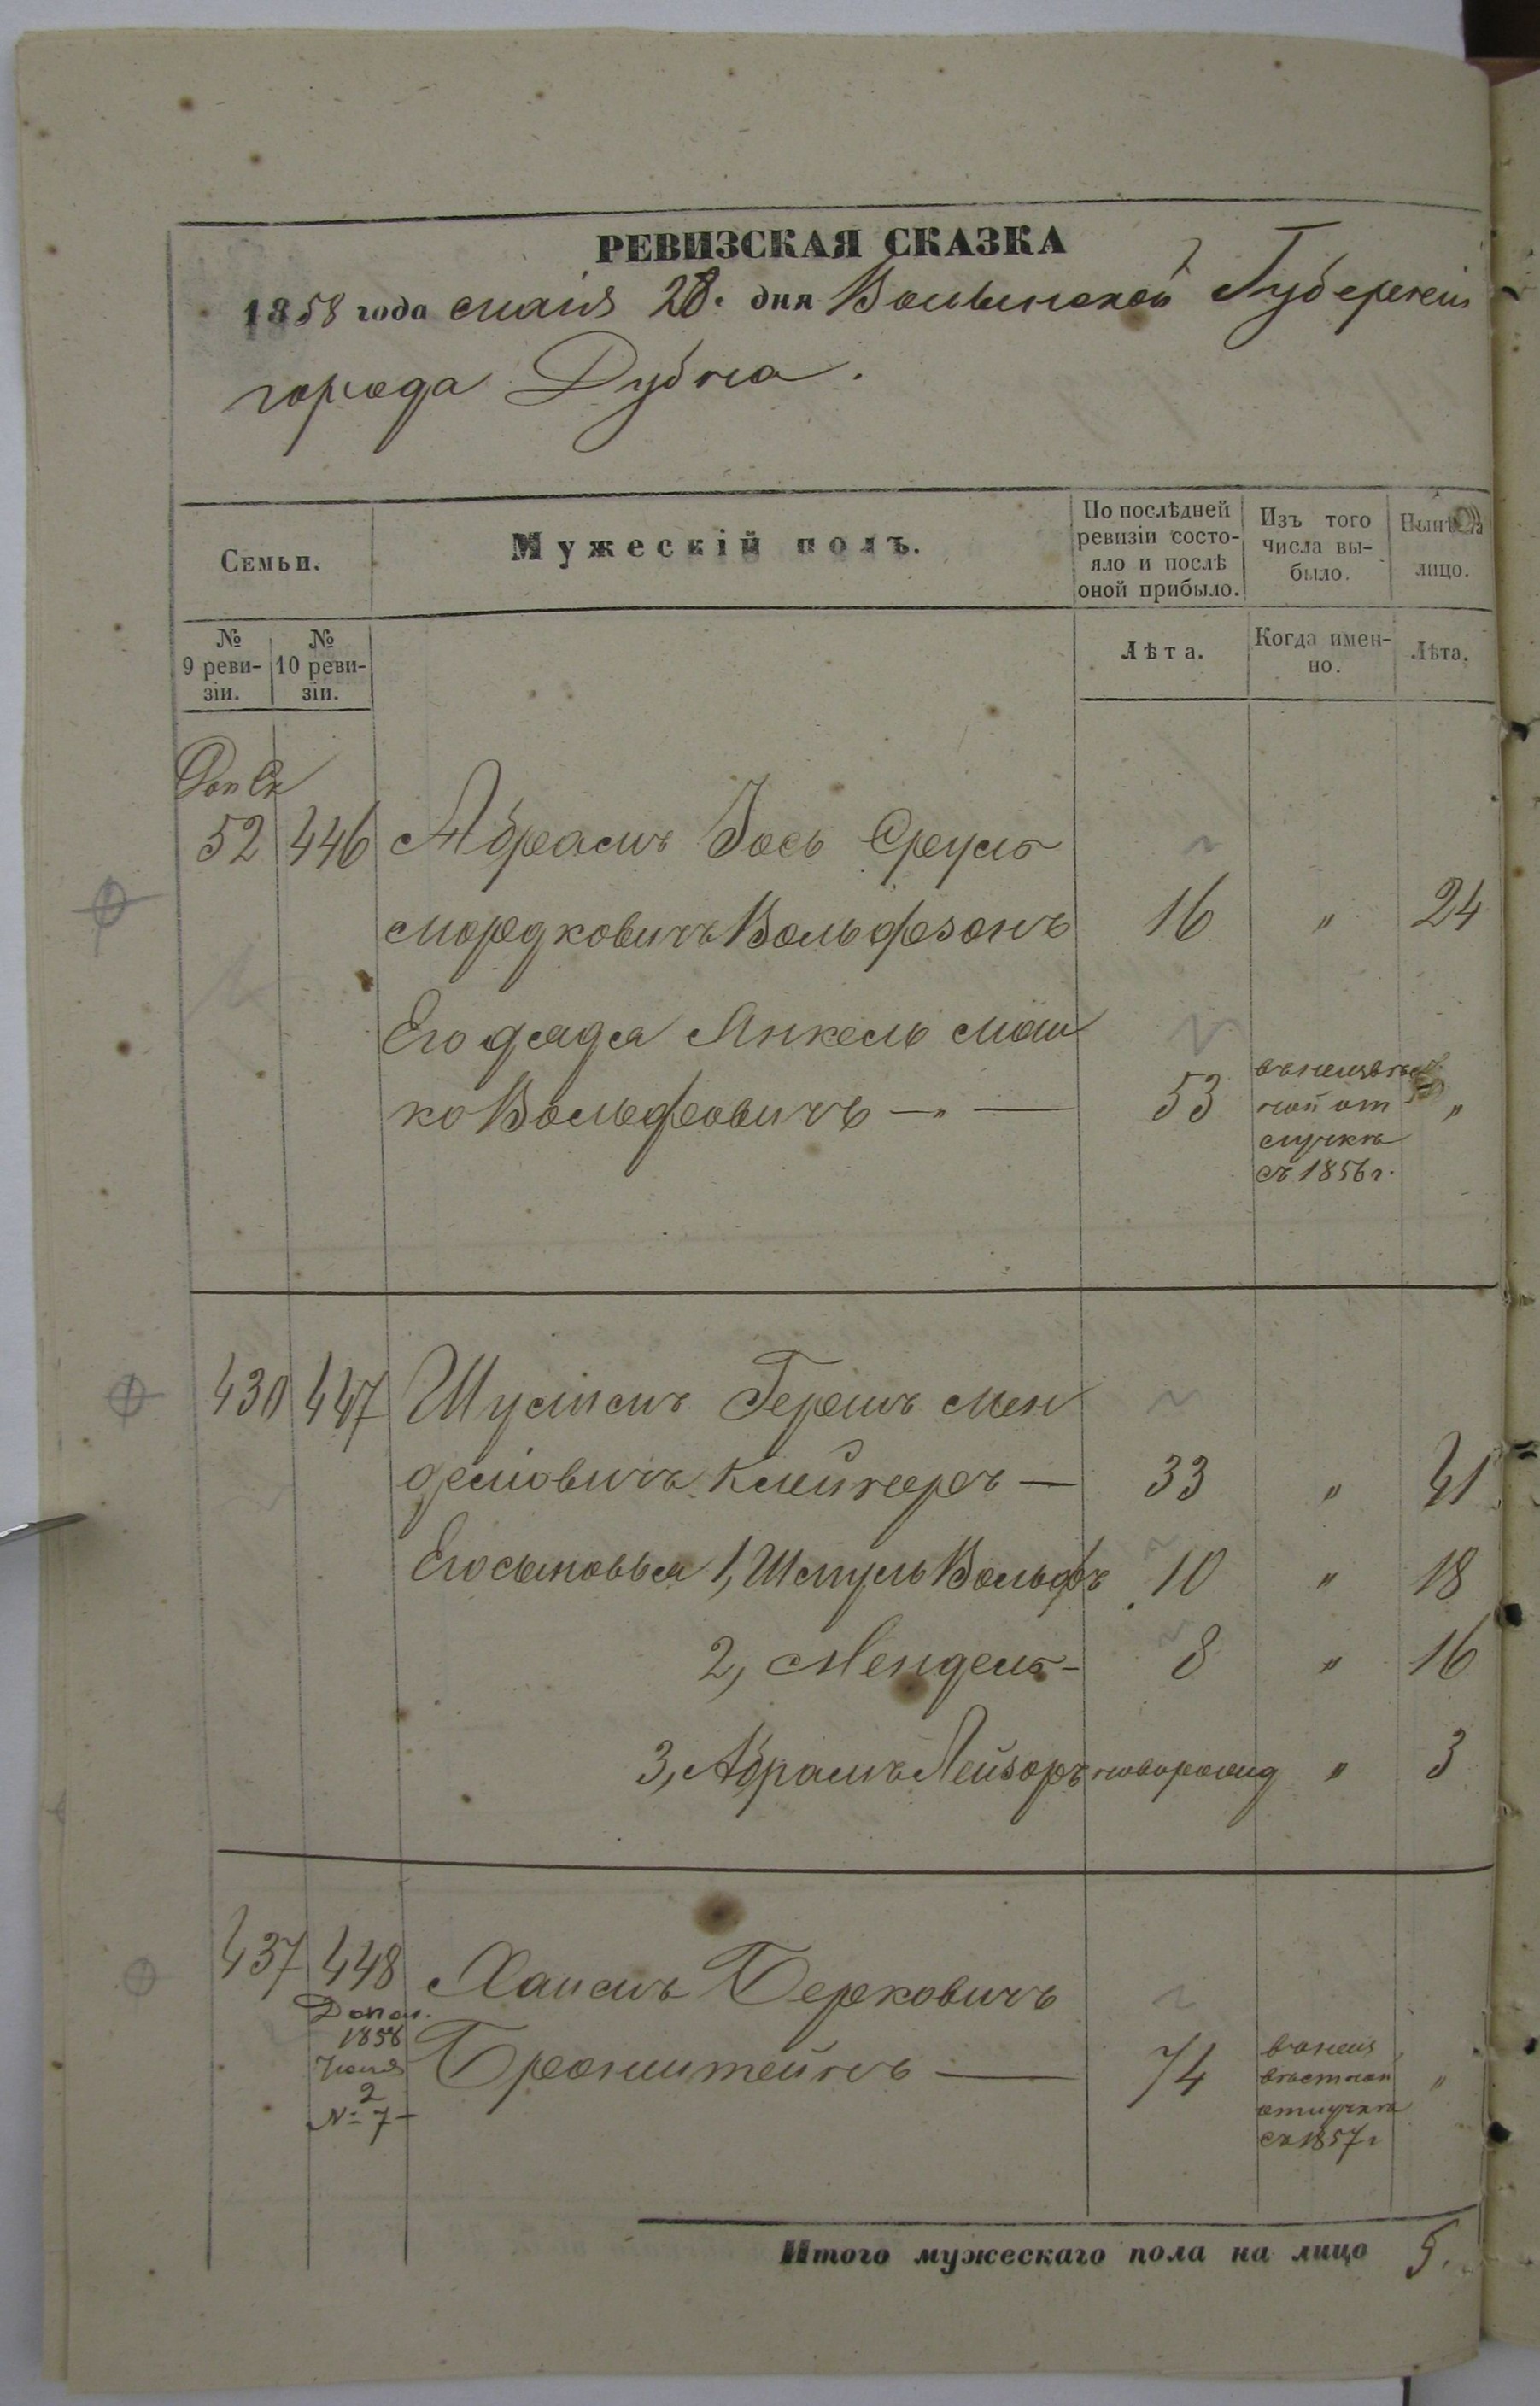 РЕВИЗСКАЯ СКАЗКА
1858 года маія 28. дня Волынской Губерніи
города Дубна.
Семьи.
Мужескій полъ.
По послѣдней ревизіи состо-
яло и послѣ
оной прибыло.
Изъ того
числа вы-
было.
Нынѣ на
лицо.
№
9 реви-
зіи.
№
10 реви-
зіи.
Лѣта.
Когда имен-
но.
Лѣта.
Доп Ск
52 446 Абрамъ Іось Сруль
Мордковичъ Вольфзонъ 16 " 24
Его дядя Янкель Мош
ко Вольфовичъ —"— 53 "
въ неизвѣст
ной от
лучкѣ
съ 1856 г.
430 447 Шулимъ Гершъ Мен
делювичъ Клейнеръ — 33 " 41
Его сыновья 1, Шмуль Вольфъ 10 " 18
2, Мендель - 8 " 16
3, Абрамъ Лейзоръ новорожд " 3
437 448 Хаимъ Берковичъ
Допол.
1858
Іюня
2
№ 7
Бронштейнъ — 74 "
въ неиз
вѣстной
отлучкѣ
съ 1857 г
Итого мужескаго пола на лицо 5.